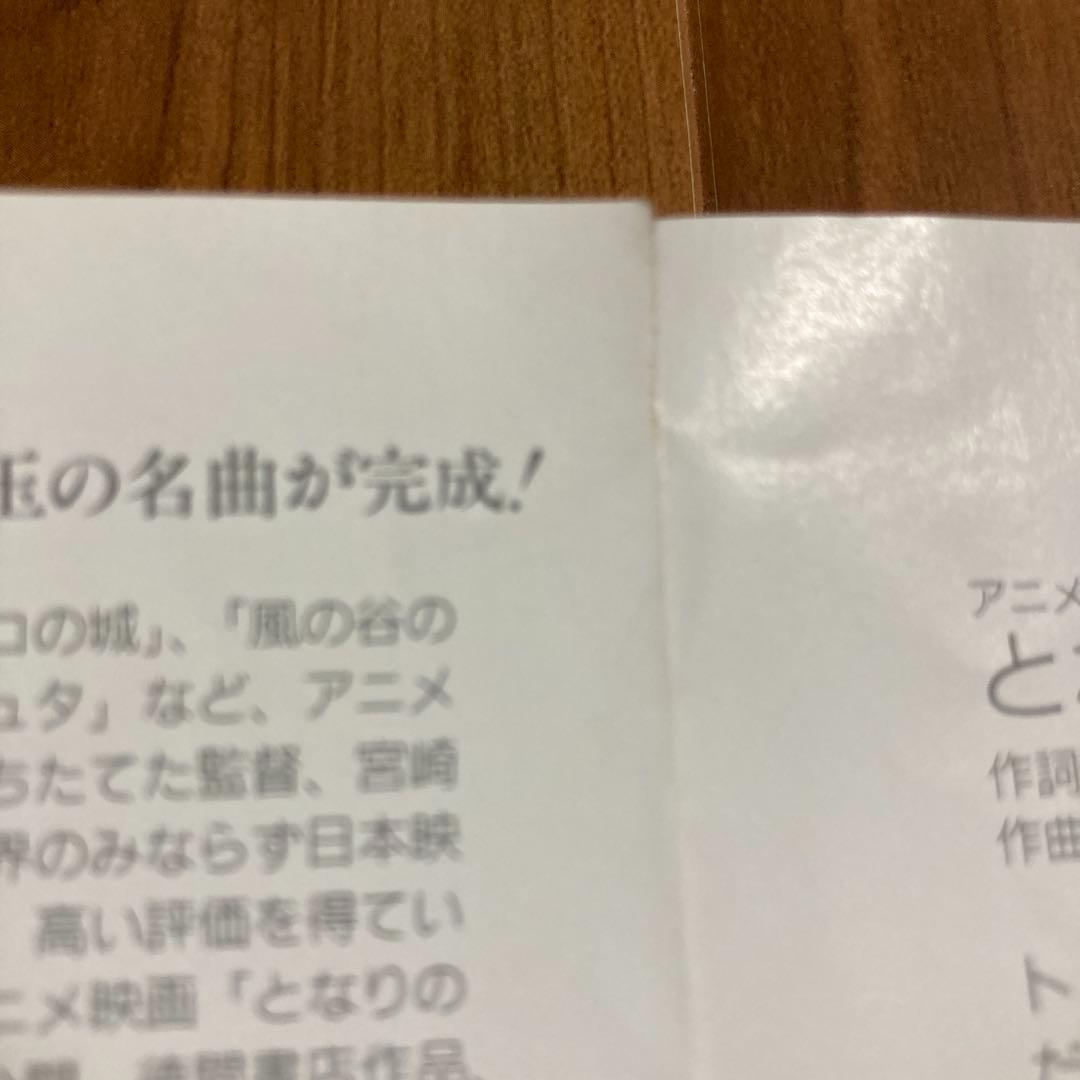 玉の名曲が完成!
コの城」、「風の谷の
ュタ」など、アニメ
ちたてた監督、宮崎
界のみならず日本映
高い評価を得てい
ニメ映画「となりの
徳間書店作品
アニメ
とな
作詞
作曲